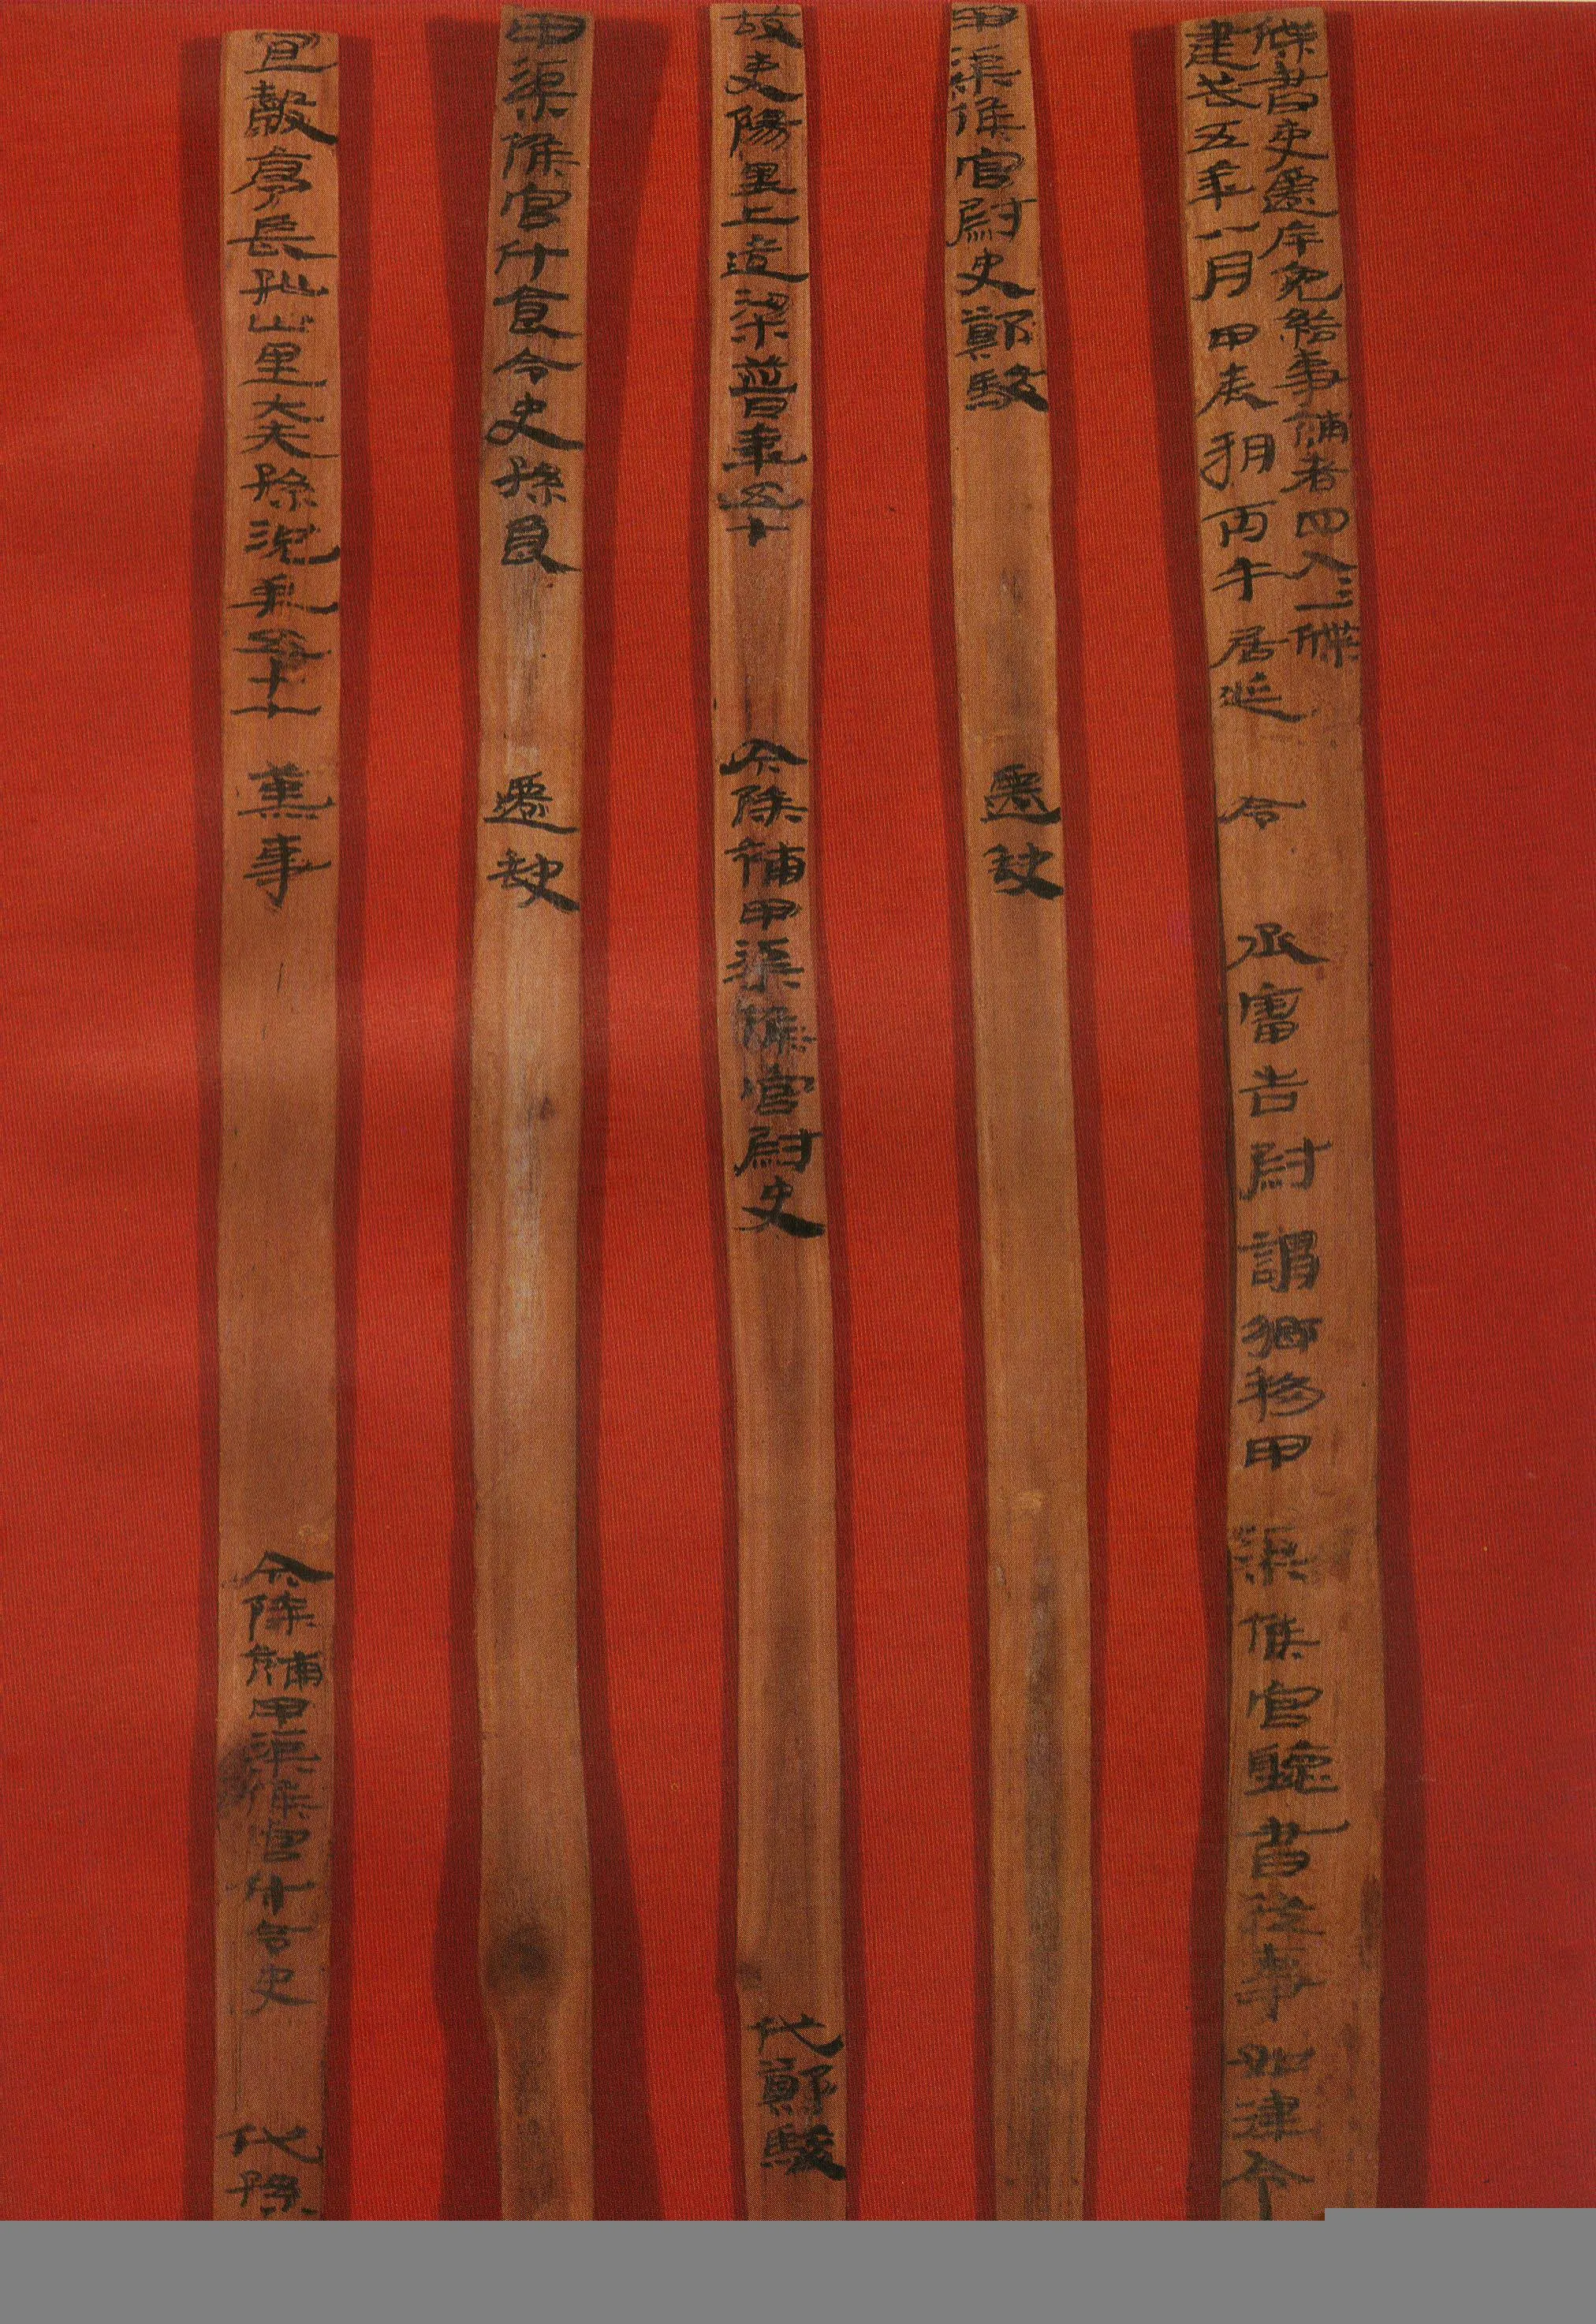 牒書吏遷斥免給事補者四人=一牒
建武五年八月甲辰朔丙午居延令 丞審告尉謂鄉移甲渠候官聽書從事如律令
甲渠候官尉史鄭駿 遷缺
故吏陽里上造梁普年五十 今除補甲渠候官尉史 代鄭駿
甲渠候官斗食令史孫良 遷缺
宜穀亭長孤山里大夫孫況年五十七 薰事 今除補甲渠候官斗令史 代孫